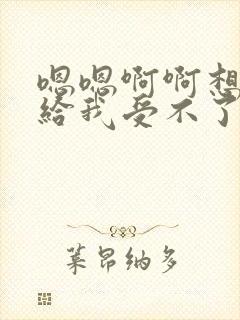 嗯嗯啊啊想
给我受不了
莱昂纳多